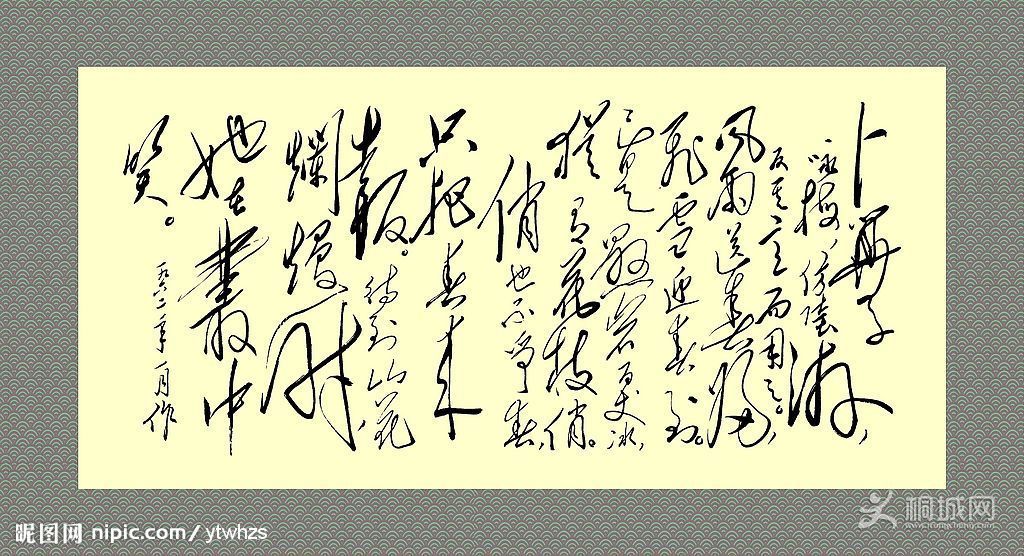 卜算子
咏梅,仿陸游,
反其意而用之。
风雨送春归,
飛雪迎春到。
已是懸岩百丈冰,
犹有花枝俏。
俏也不争春,
只把春来
報。待到山花
爛熳时,
她在叢中
笑。
一九六二年一月作
昵图网 nipic.com/ytwhzs
桐城网